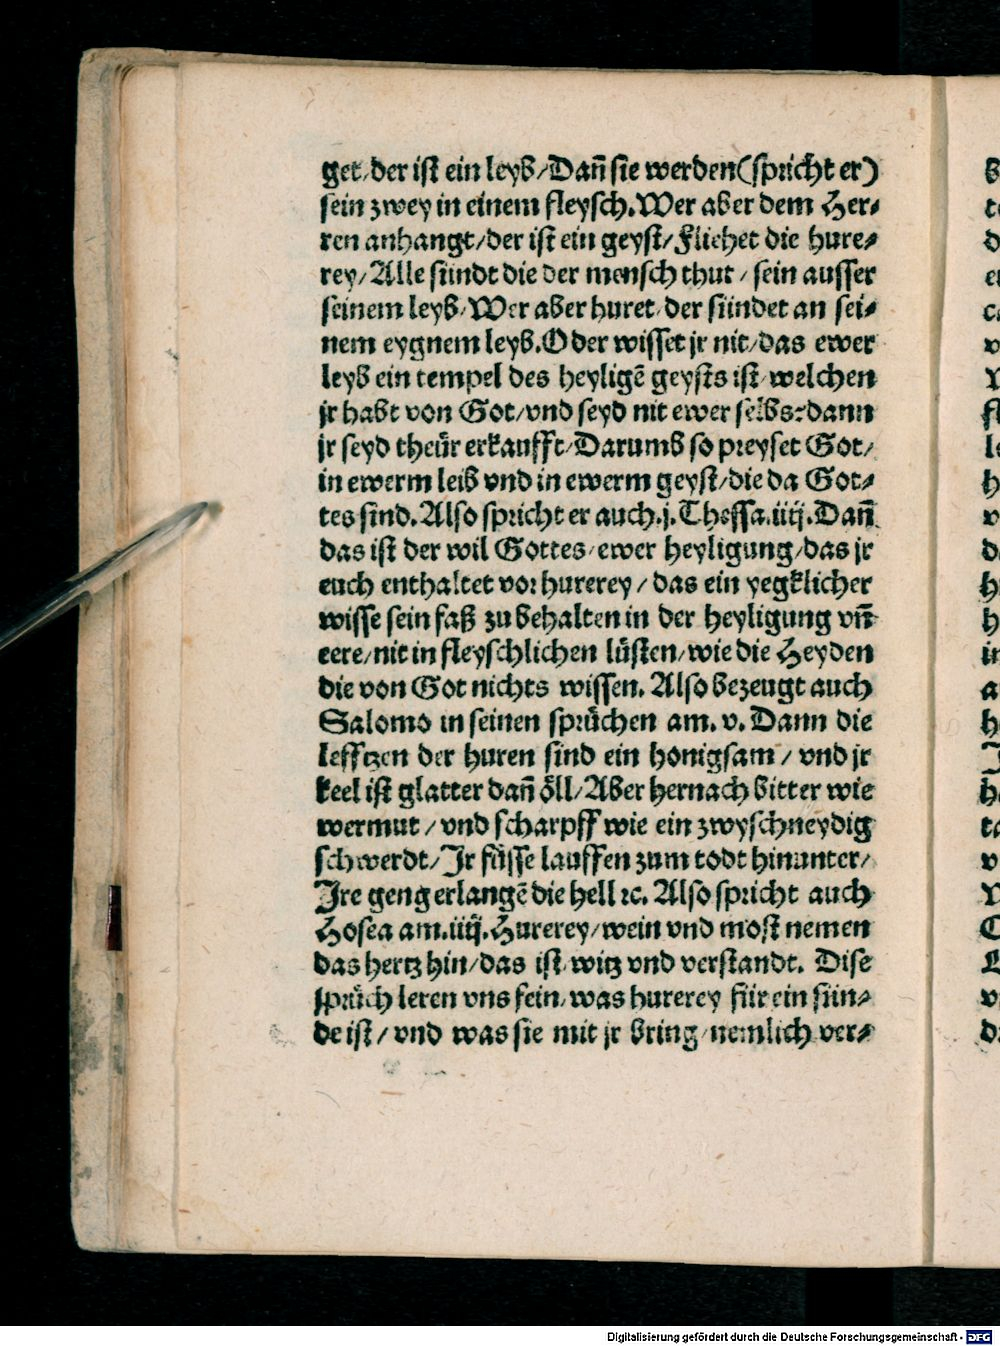 get/der ist ein leyb/Dañ sie werden(spricht er)
sein zwey in einem fleysch.Wer aber dem Her⸗
ren anhangt/der ist ein geyst/Fliehet die hure⸗
rey/Alle sündt die der mensch thut/sein ausser
seinem leyb/Wer aber huret/der sündet an sei⸗
nem eygnem leyb.Oder wisset jr nit/das ewer
leyb ein tempel des heyligē geysts ist/welchen
jr habt von Got/vnd seyd nit ewer selbs:dann
jr seyd theür erkaufft/Darumb so preyset Got/
in ewerm leib vnd in ewerm geyst/die da Got⸗
tes sind.Also spricht er auch.j.Thessa.iiij.Dañ
das ist der wil Gottes/ewer heyligung/das jr
euch enthaltet vor hurerey/das ein yegklicher
wisse sein faß zu behalten in der heyligung vñ
eere/nit in fleyschlichen lüsten/wie die Heyden
die von Got nichts wissen. Also bezeugt auch
Salomo in seinen sprüchen am. v. Dann die
lefftzen der huren sind ein honigsam/vnd jr
keel ist glatter dañ öll/Aber hernach bitter wie
wermut/vnd scharpff wie ein zwyschneydig
schwerdt/Jr füsse lauffen zum todt hinunter/
Jre geng erlangē die hell ꝛc. Also spricht auch
Hosea am.iiij.Hurerey/wein vnd most nemen
das hertz hin/das ist/witz vnd verstandt. Dise
sprüch leren vns fein/was hurerey für ein sün⸗
de ist/vnd was sie mit jr bring/nemlich ver⸗
Digitalisierung gefördert durch die Deutsche Forschungsgemeinschaft - DFG